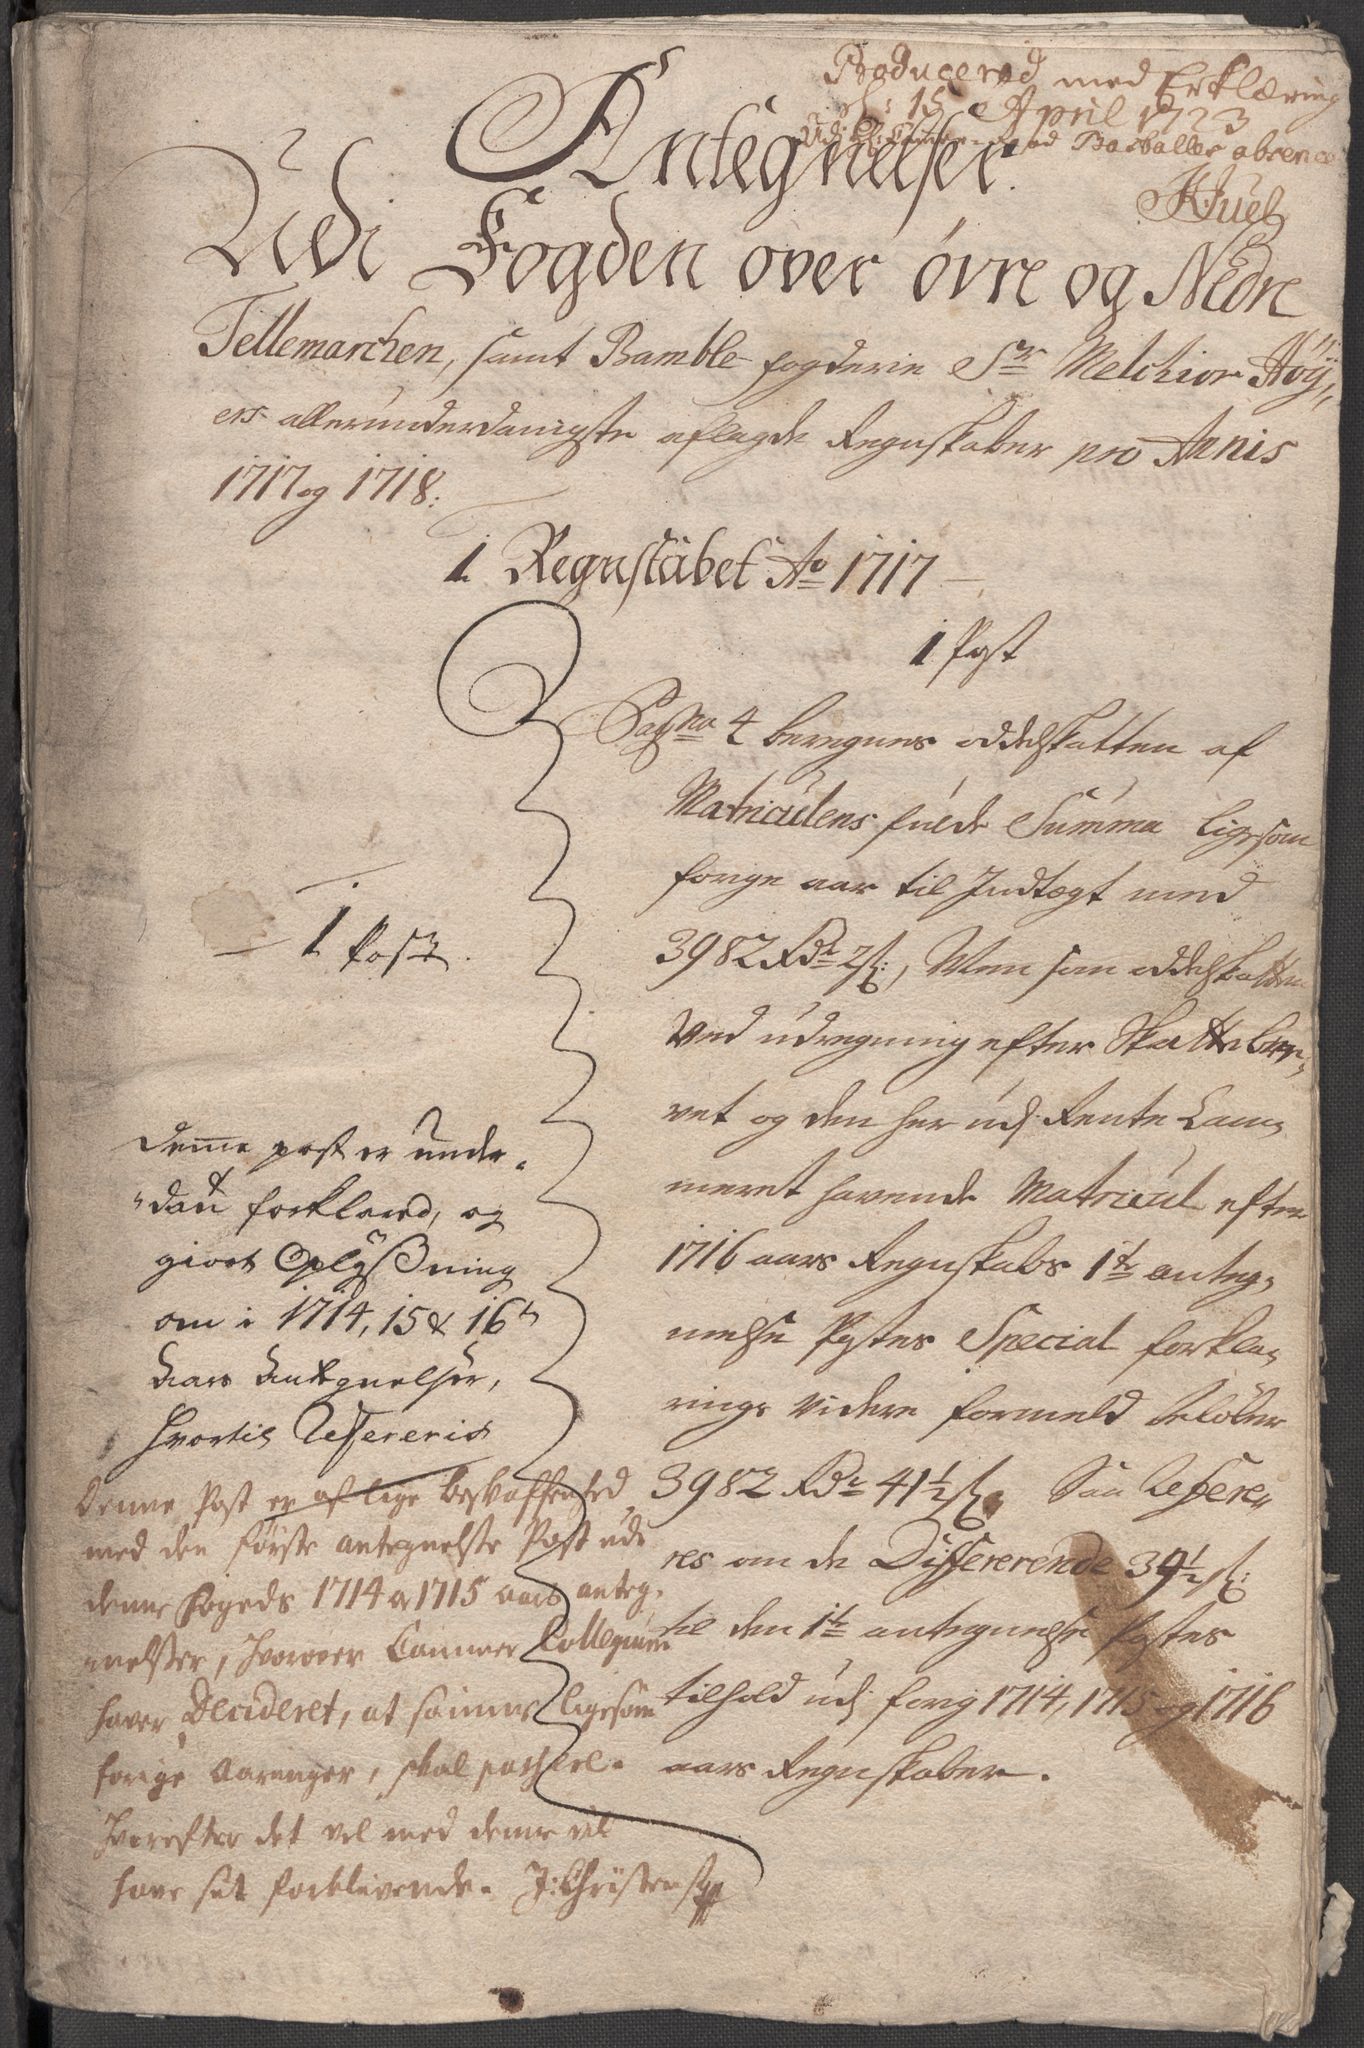 Producered med Erklæring
d: 15 April 1723
Barballes absence
HJuel
Antegnelser.
Udi Fogden over øvre og Nedre
Tellemarchen, samt Bamble fogderie Sr Melchior Høÿ,,
ers allerunderdanigste aflagde Regnskaber pro Annis
1717 og 1718:
1 Regnskabet Ao 1717
1 Post
Pag No 4 beregnes oddelskatten af
Matriculens fulde Summa ligesom
forige aar til Indtægt med
3982 Rdr 2 s:, Men som oddelskatten
Ved udregning efter Skattebre,,
vet og den her udj Rente Cam,,
meret havende Matricul efter
1716 aars Regnskabs 1te anteg,,
nelse Postes Special forkla,,
rings videre formeld beløber
3982 Rdr 41½ s, Saa Refere,,
res om de Differerende 39½ s:
til den 1te antegnelse Postes
tilhold udj forig 1714, 1715 og 1716
aars Regnskaber.
1 Post.
Denne post er under-
dan forklared, og
giort Oplÿßning
om i 1714, 15 & 16de
Aars Antegnelser,
hvortil Refereris
Denne Post er af lige beskaffenhed
med den første antegnelse Post udi
denne fogeds 1714 og 1715 aars anteg,
nelser, hvorover Cammer Collegium
haver Decideret, at samme ligesom
forige Aaringer, skal passeres.
hvorefter det vel med denne vil
have sit forblivende. J: Christens